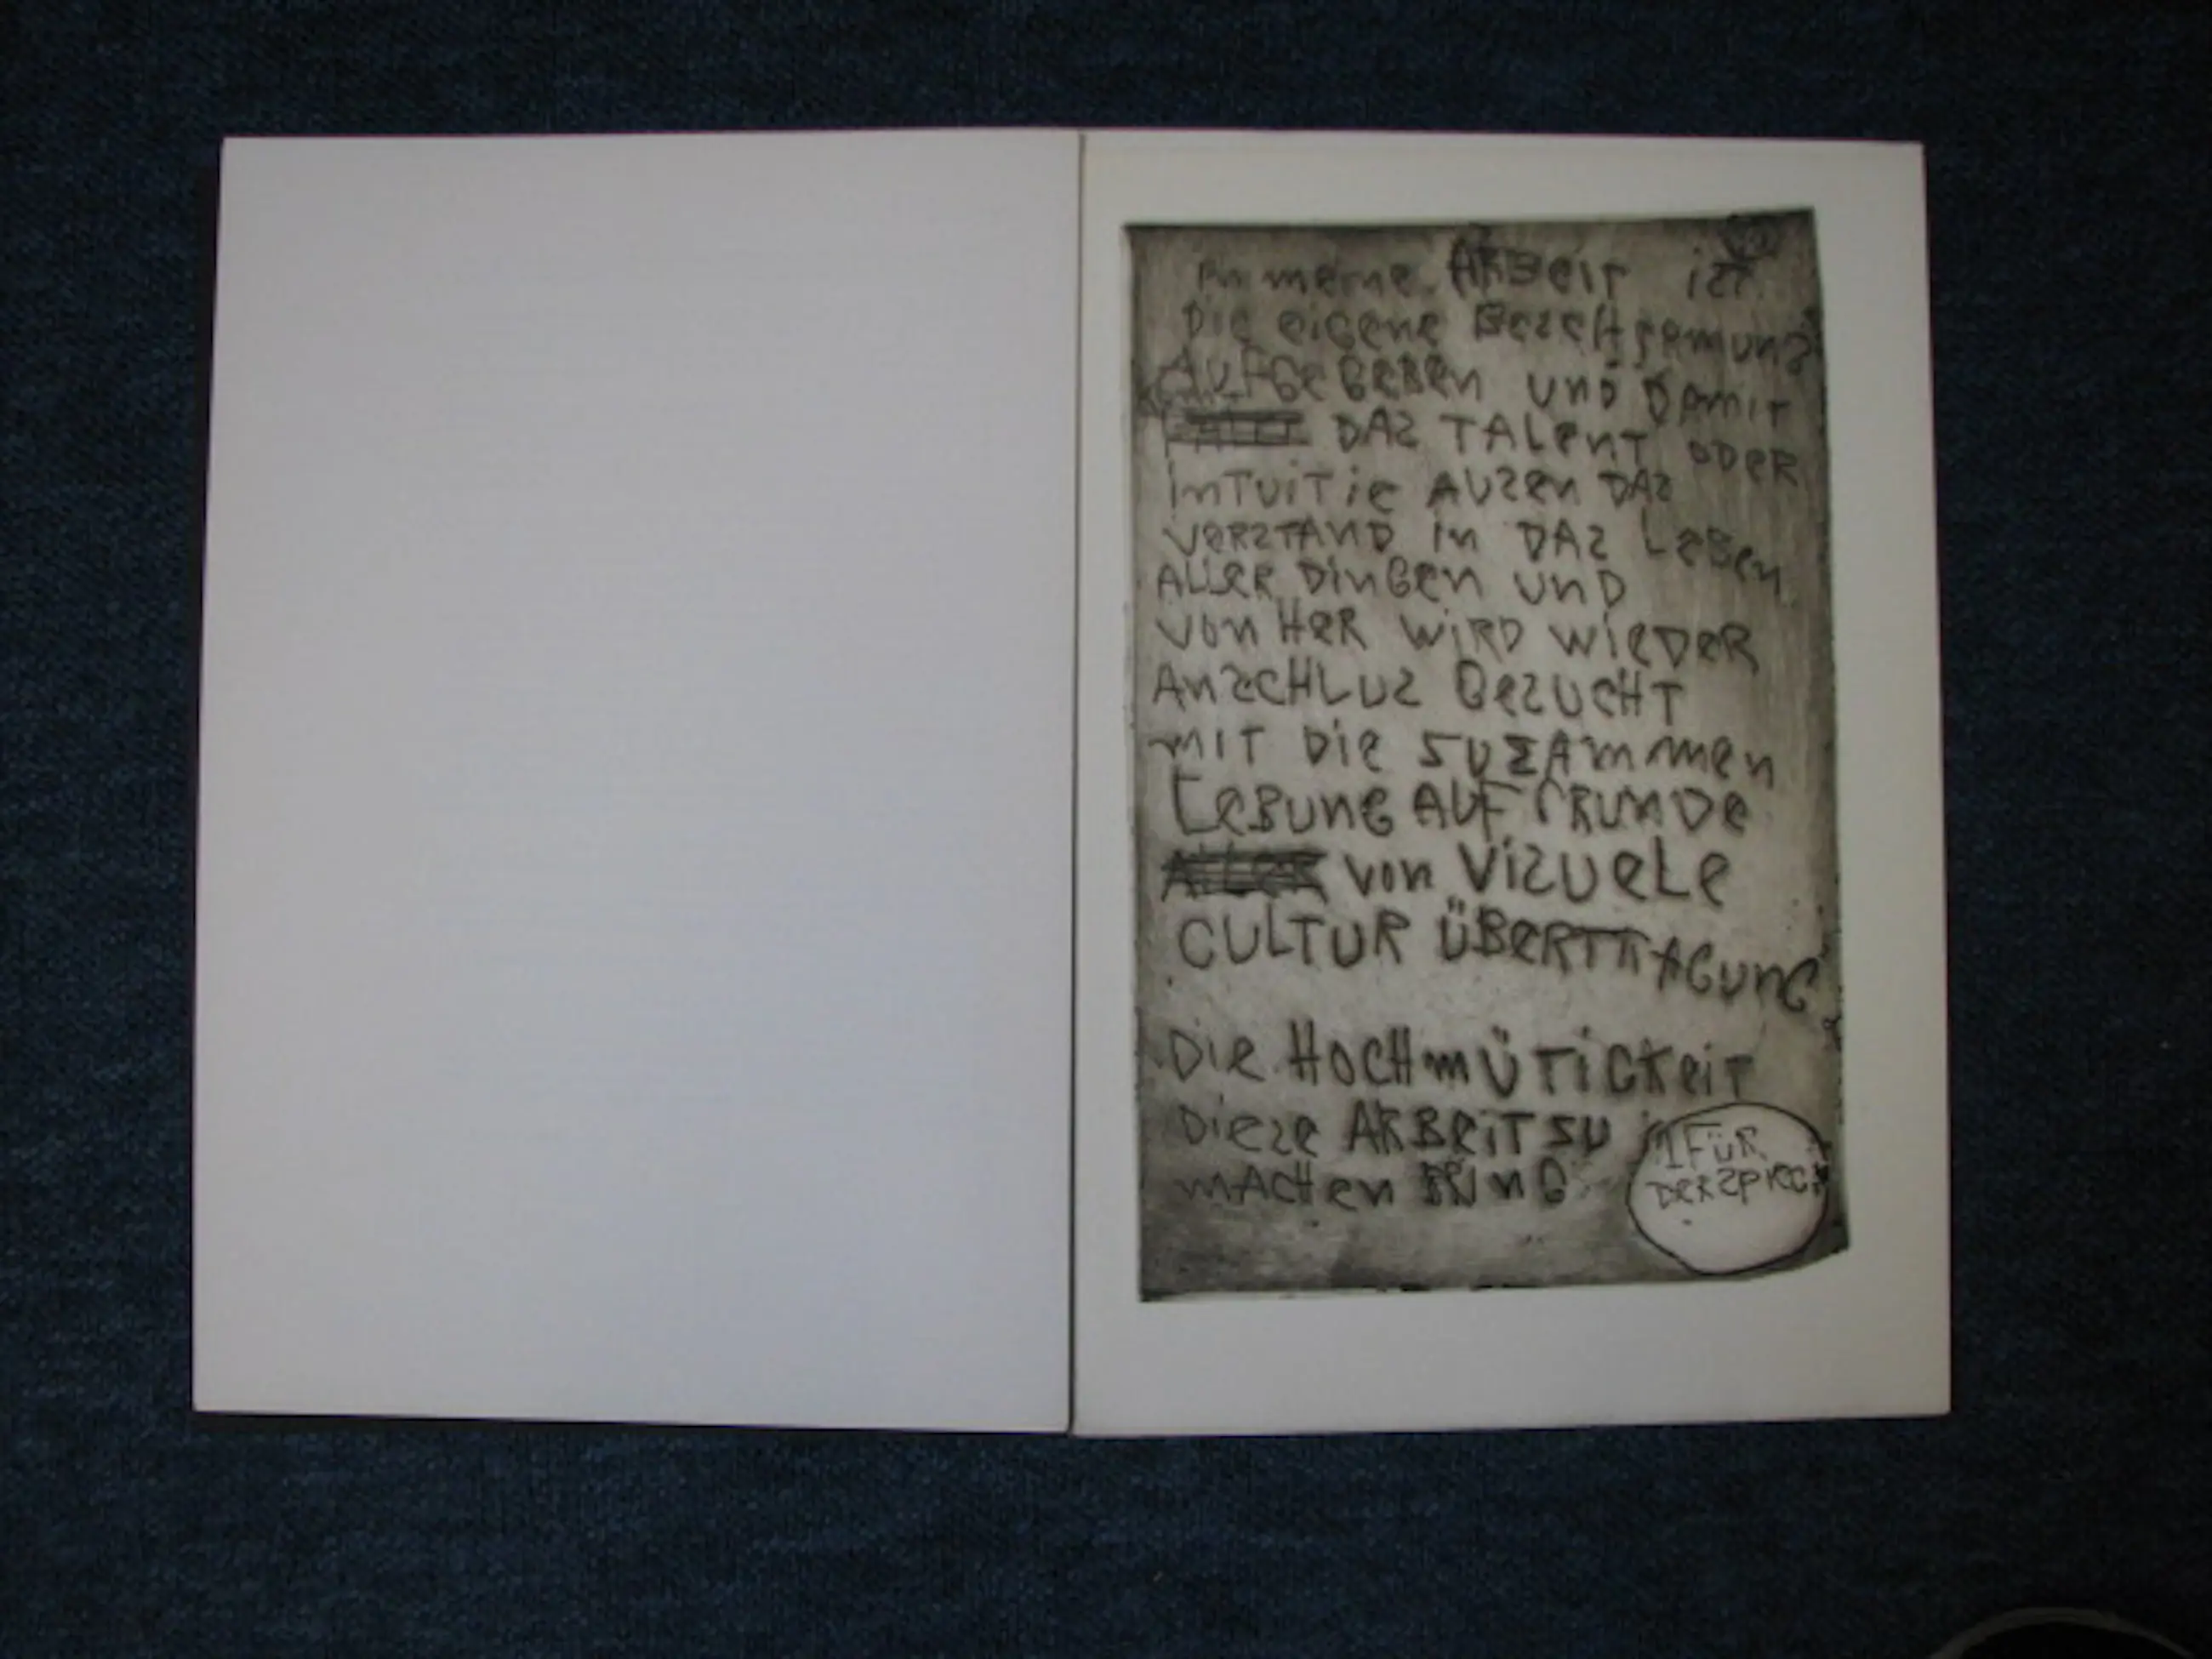 in meine Arbeit ist
Die eigene
AUFGEGEBEN UND DAMIT
DAS TALENT ODER
INTUITIE AUSEN DAS
VERSTAND IN DAS LEBEN
ALLER DINGEN UND
VON HER WIRD WIEDER
ANSCHLUS GESUCHT
MIT DIE ZUSAMMEN
LEBUNG AUF GRUNDE
VON VISUELE
CULTUR ÜBERTRAGUNG
DIE HOCHMÜTICKEIT
DIESE ARBEIT ZU
MACHEN BRING
1 FÜR
DER SPIEG